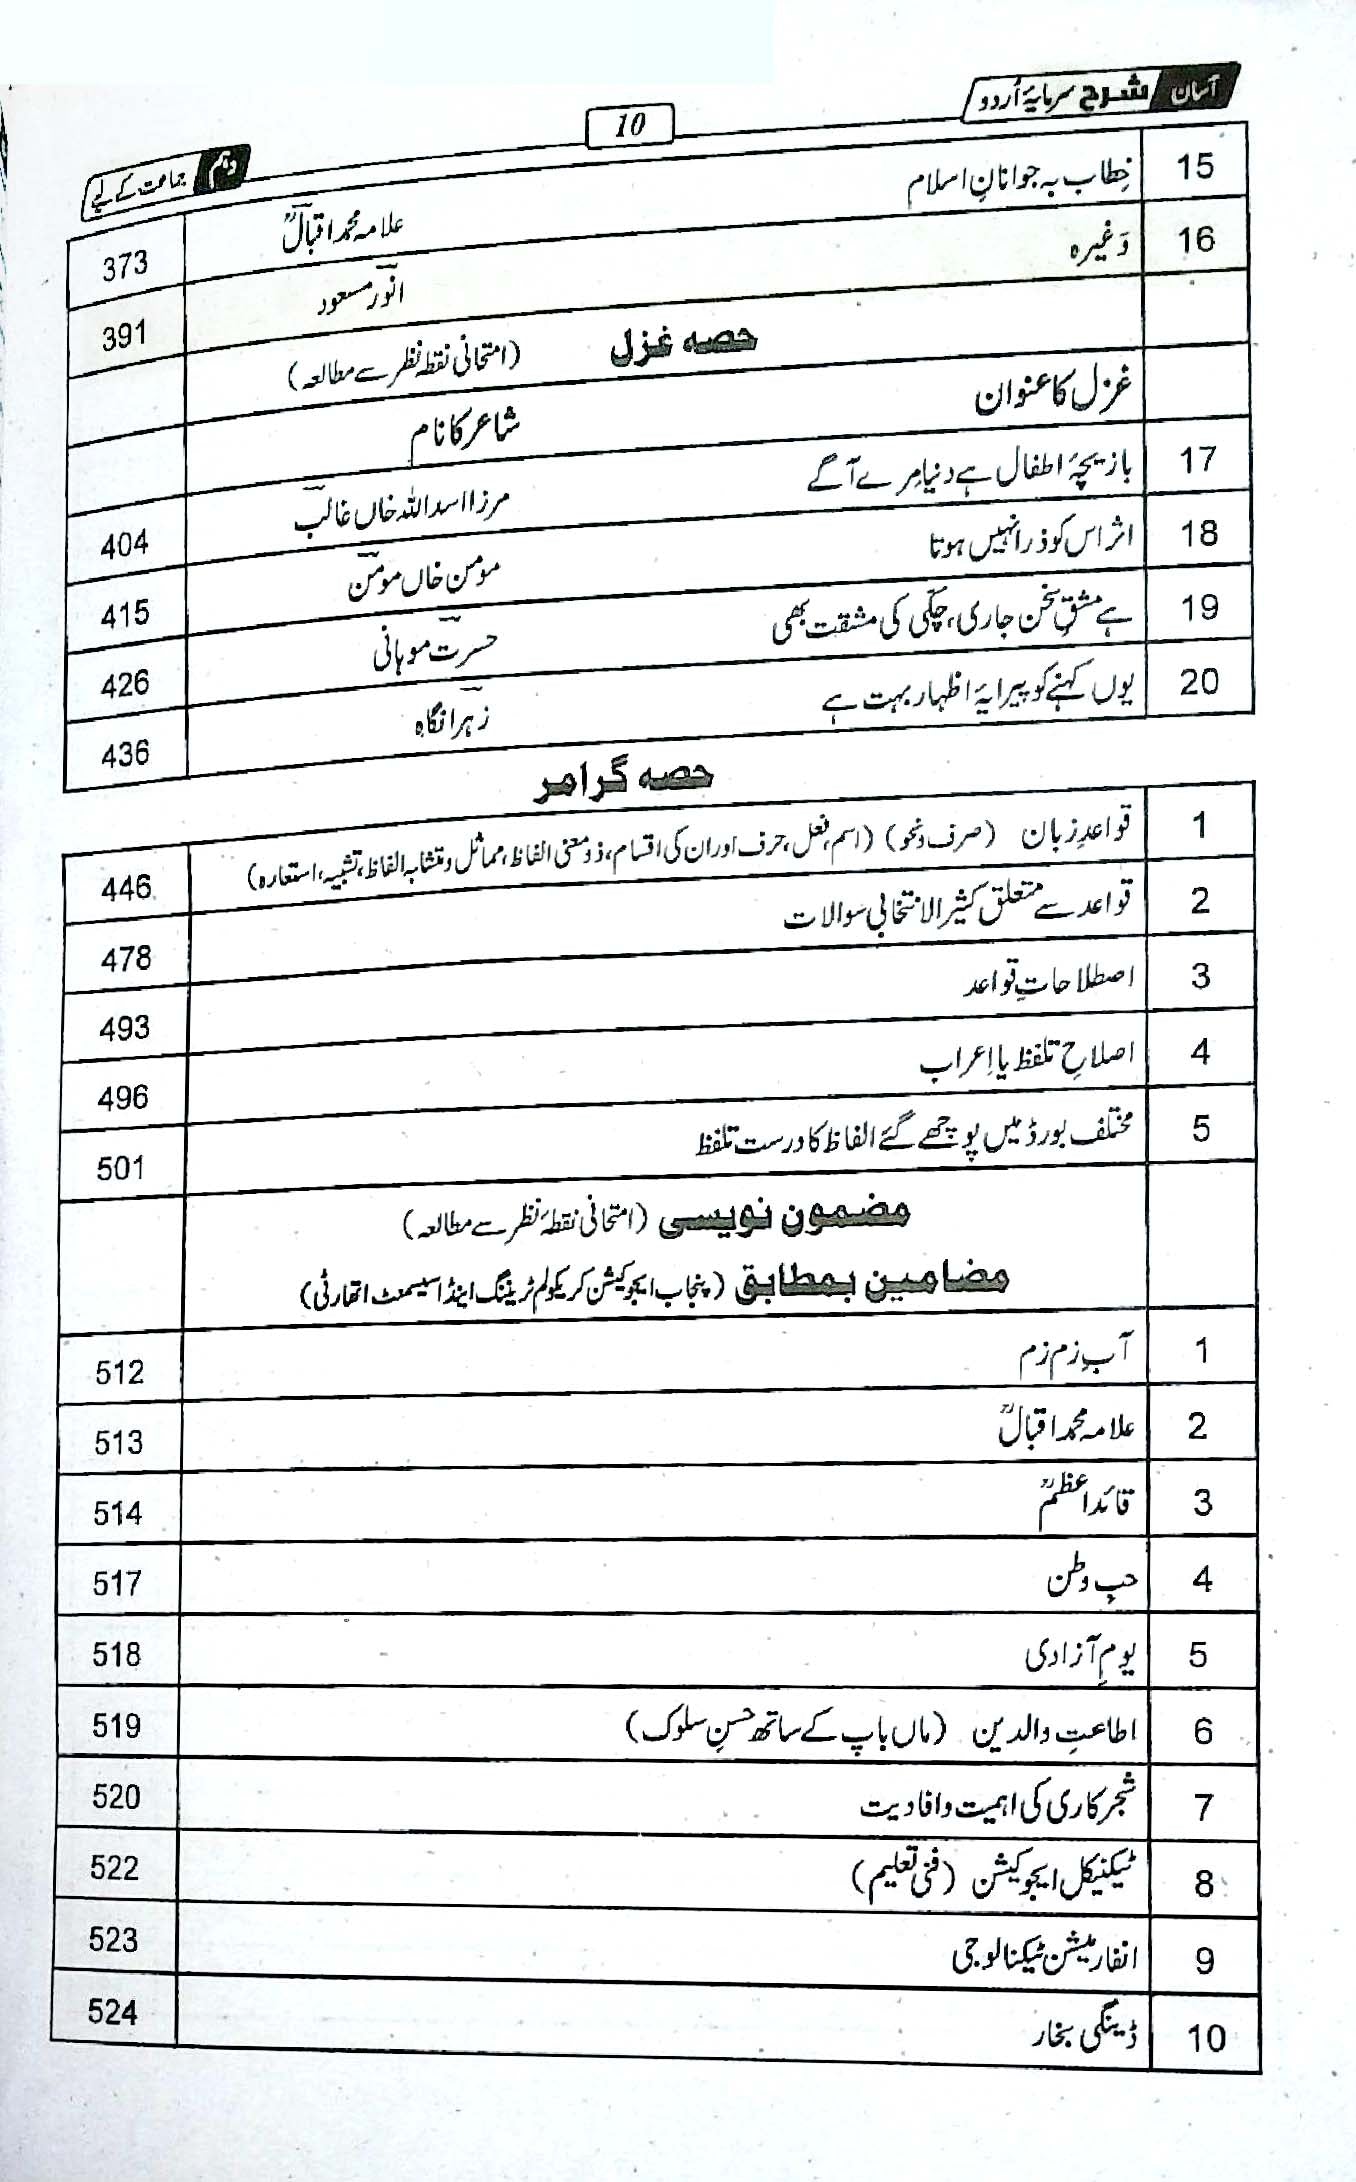 آسان شرح سرمایۂ اُردو
10
دہم جماعت کے لیے
15 خِطاب بہ جوانانِ اسلام علامہ محمد اقبالؒ 373
16 وَغیرہ انور مسعود 391
حصہ غزل (امتحانی نقطۂ نظر سے مطالعہ)
غزل کا عنوان شاعر کا نام
17 بازیچۂ اطفال ہے دنیا مِرے آگے مرزا اسد اللہ خاں غالب 404
18 اثر اس کو ذرا نہیں ہوتا مومن خاں مومن 415
19 ہے مشقِ سخن جاری، چکّی کی مشقت بھی حسرت موہانی 426
20 یوں کہنے کو پیرایۂ اظہار بہت ہے زہرا نگاہ 436
حصہ گرامر
1 قواعدِ زبان (صرف و نحو) (اسم، فعل، حرف اور ان کی اقسام، ذو معنی الفاظ، مماثل و متشابہ الفاظ، تشبیہ، استعارہ) 446
2 قواعد سے متعلق کثیر الانتخابی سوالات 478
3 اصطلاحاتِ قواعد 493
4 اصلاحِ تلفظ یا اِعراب 496
5 مختلف بورڈ میں پوچھے گئے الفاظ کا درست تلفظ 501
مضمون نویسی (امتحانی نقطۂ نظر سے مطالعہ)
مضامین بمطابق (پنجاب ایجوکیشن کریکولم ٹریننگ اینڈ اسیسمنٹ اتھارٹی)
1 آبِ زم زم 512
2 علامہ محمد اقبالؒ 513
3 قائداعظمؒ 514
4 حبِ وطن 517
5 یومِ آزادی 518
6 اطاعتِ والدین (ماں باپ کے ساتھ حسنِ سلوک) 519
7 شجرکاری کی اہمیت و افادیت 520
8 ٹیکنیکل ایجوکیشن (فنی تعلیم) 522
9 انفارمیشن ٹیکنالوجی 523
10 ڈینگی بخار 524